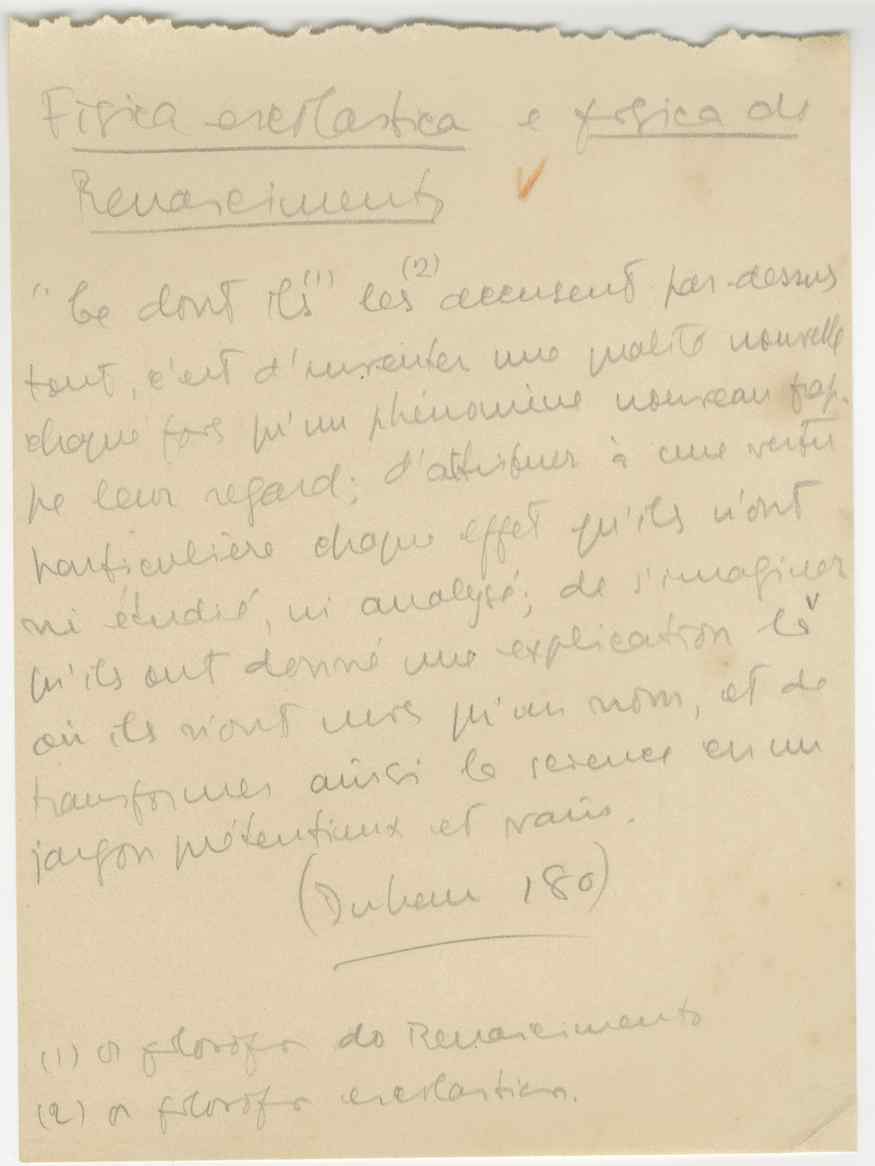 Fisica escolastica e fisica do
Renascimento
"Ce dont ils (1) les (2) accusent par-dessus
tout, c'est d'inventer une qualité nouvelle
chaque fois qu'un phénomène nouveau frap-
pe leur regard; d'attribuer à une vertu
particulière chaque effet qu'ils n'ont
ni étudié, ni analysé; de s'imaginer
qu'ils ont donné une explication là
où ils n'ont mis qu'un nom, et de
transformer ainsi la science en un
jargon prétentieux et vain.
(Duhem 180)
(1) os filosofos do Renascimento
(2) os filosofos escolasticos.